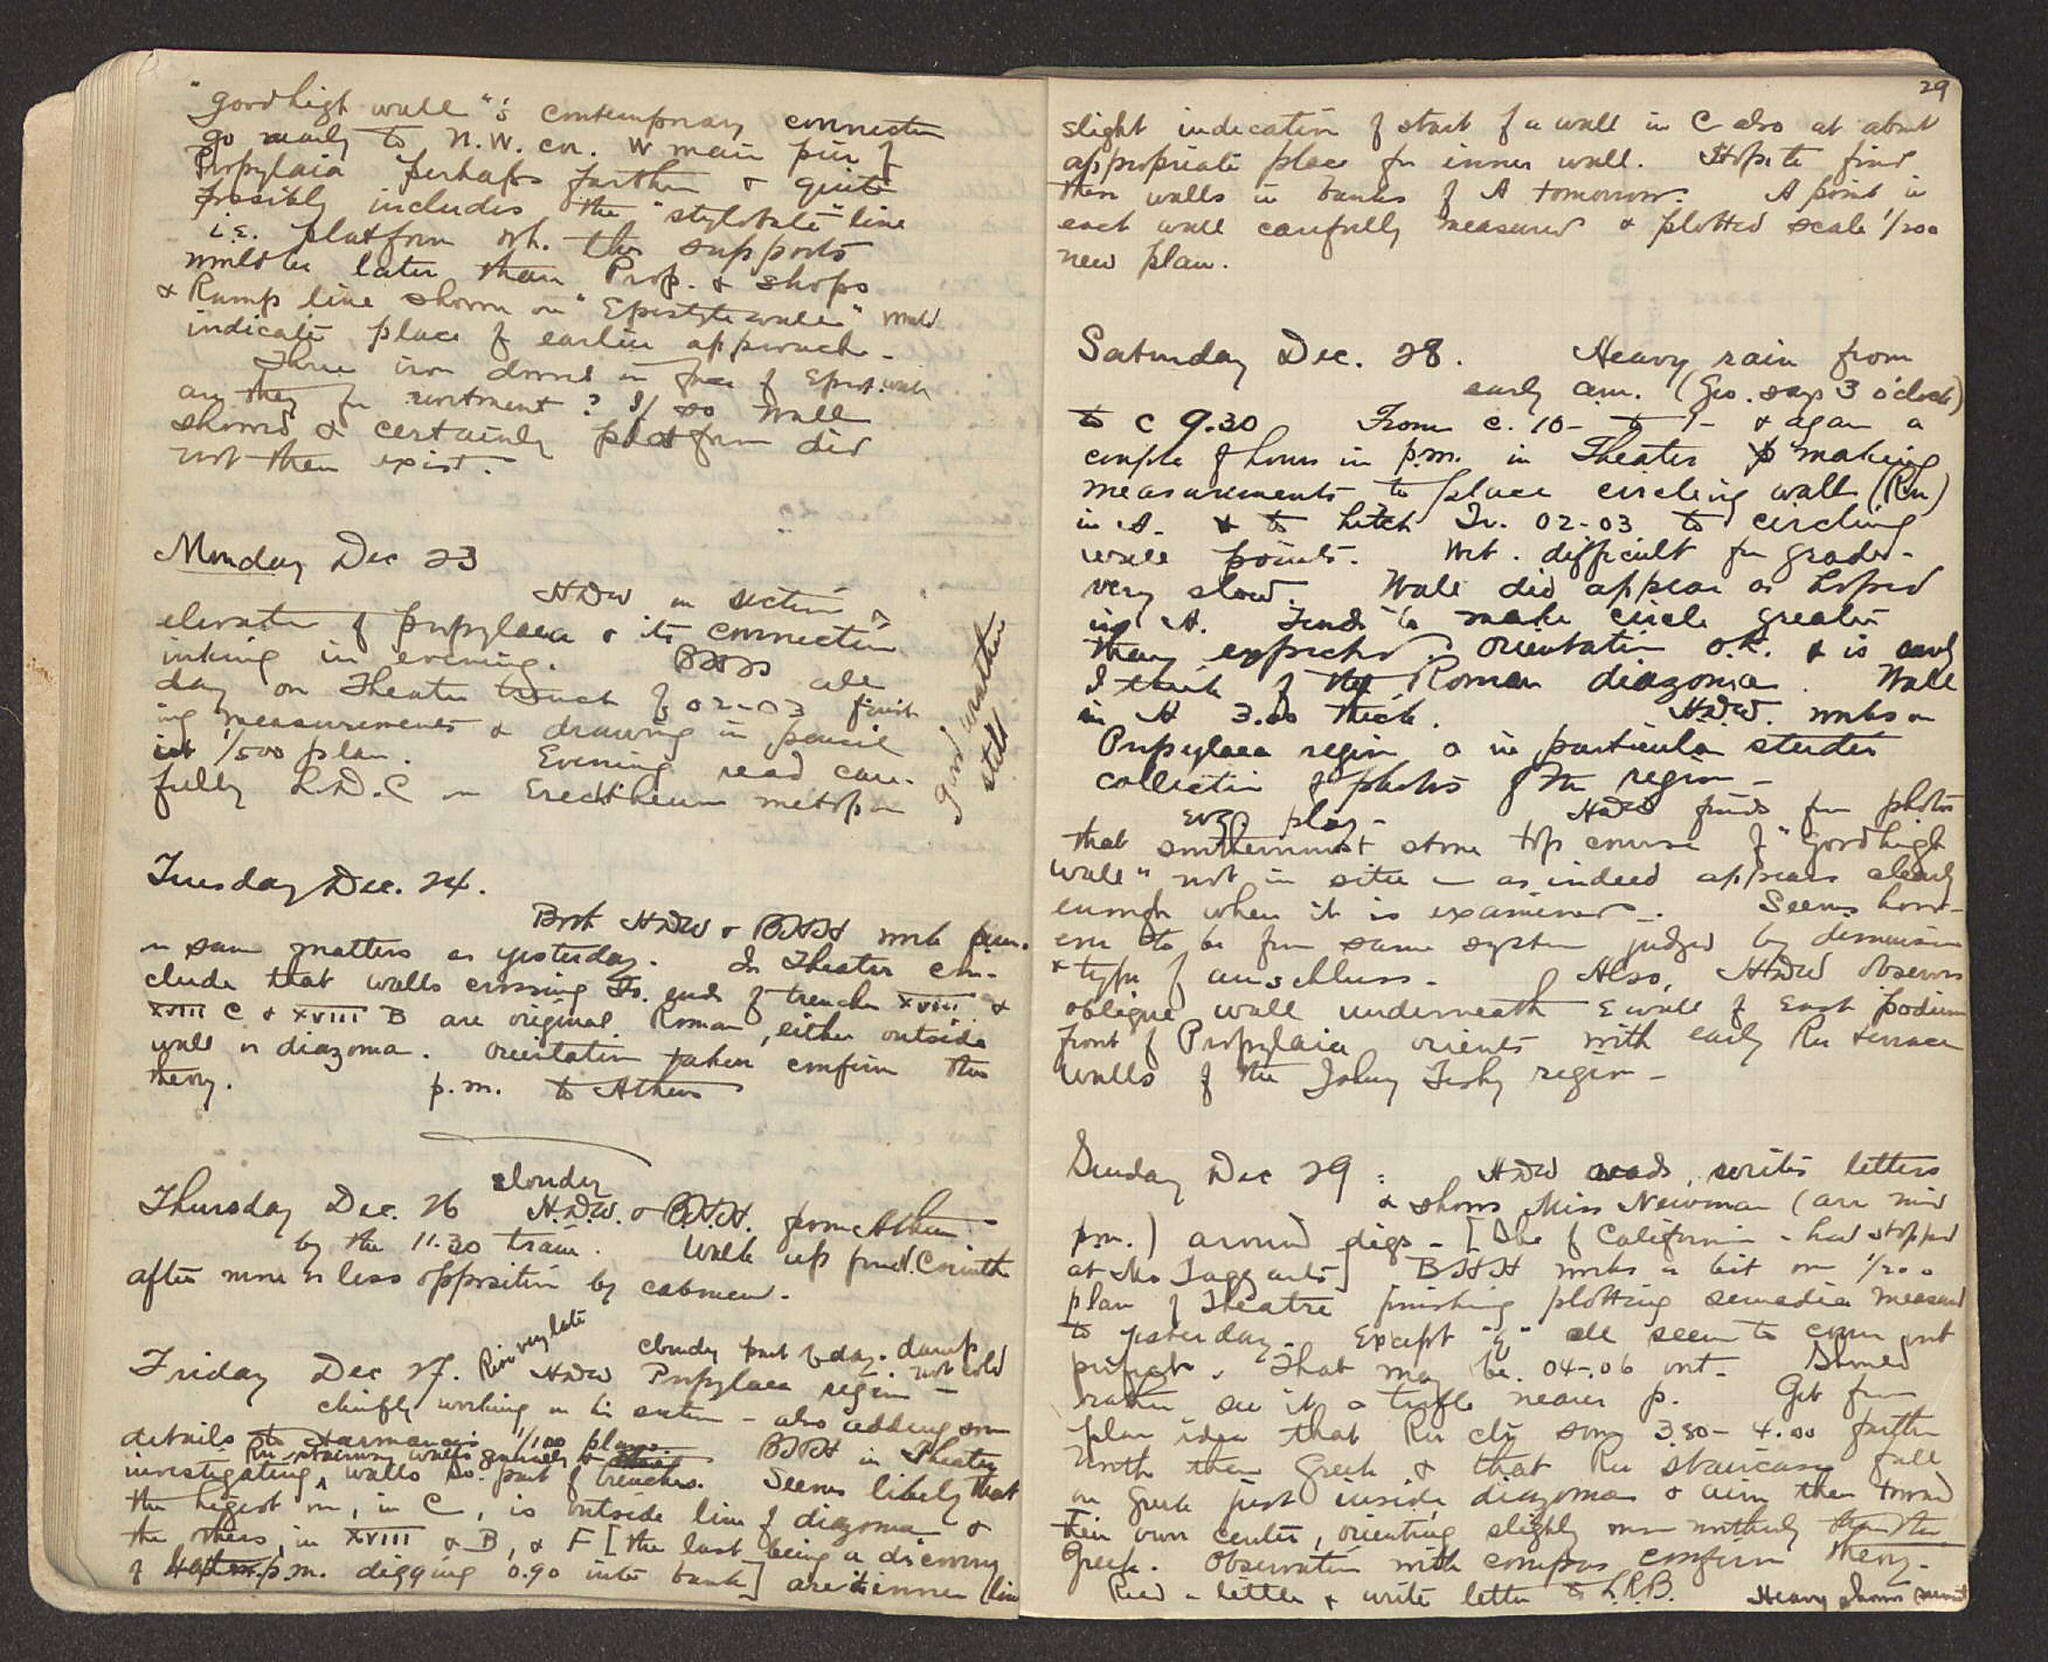 "Good high wall" 's contemporary connection
go nearly to N.W. cor. W main pier of
Propylaia perhaps farther & quite
possibly includes the "stylobate" line
i.e. platform wh. this supports
would be later than Prop. & shops
& Ramp line shown on "Epistyle wall" would
indicate place of earlier approach -
Three iron in face of Epist. wall
are they for revetment? If so wall
showed & certainly platform did
not then exist.
Monday Dec 23
HDW on section &
elevation of propylaea & its connection
inking in evening. BHH all
day on Theater trench of 02-03 finish
ing measurements & drawing in pencil
1/500 plan. Evening read care-
fully L.D.C on Erechtheum metopon
Good weather
still
Tuesday Dec. 24.
Both HDW & BHH work
on same matters as yesterday. In Theater con-
clude that walls crossing So. ends of trenches XVIII &
XVIII C & XVIII B are original Roman, either outside
wall or diazoma. Orientation taken confirm this
theory. p.m. to Athens
Thursday Dec. 26 cloudy H.D.W. & B.H.H. from Athens
by the 11.30 train. Walk up from N. Corinth
after more or less opposition by cabmen.
Friday Dec 27. Rain very late cloudy part of day - damp
not cold
HDW Propylaea region -
chiefly working on his section - also adding some
details to 1/100 plan. BHH in Theater
Rn stairway walls generally &
investigating walls So. part of trenches. Seems likely that
the biggest one, in C, is outside line of diazoma &
the others, in XVIII & B, & F [the last being a discovery
of p.m. digging 0.90 into bank] are inner line
29
slight indication of start of a wall in C also at about
appropriate place for inner wall. Hope to find
these walls in banks of A tomorrow. A point in
each wall carefully measured & plotted scale 1/200
new plan.
Saturday Dec. 28. Heavy rain from
early a.m. (Geo. says 3 o'clock)
to c 9.30 From c. 10- to 1- & again a
couple of hours in p.m. in Theater making
measurements to place circling wall (Rn)
in A. & to hitch Tr. 02-03 to circling
wall points. Wet. difficult for grades -
very slow. Wall did appear as hoped
in A. Tends to make circle greater
than expected. Orientation o.k. & is early
I think of the Roman diazoma. Wall
in A 3.00 thick. H.D.W. works on
Propylaea region & in particular studies
collection of photos of the region -
Evg. play - HDW finds from photos
that southernmost stone top course of "Good high
wall" not in situ - as indeed appears clearly
enough when it is examined -. Seems how-
ever to be from same system judged by dimension
& type of anschluss - Also, HDW observes
oblique wall underneath E wall of East podium
front of Propylaia orients with early Rn terrace
walls of the region -
Sunday Dec 29: HDW reads, writes letters
& shows Miss Newman (arr mid
p.m.) around digs - [She of California - had stopped
at Mrs Taggarts] BHH works a bit on 1/200
plan of Theatre finishing plotting measured
to yesterday. Except all seem to come out
. That may be 04-06 . Should
rather see it a trifle nearer p. Get from
plan idea that Rn ctr some 3.80 - 4.00 farther
North than Greek & that Rn staircases fall
on Greek just inside diazoma & aim then toward
their own center, orienting slightly more northerly than the
Greek. Observation with compass confirm theory -
Read a letter & write letter to L.R.B. Heavy